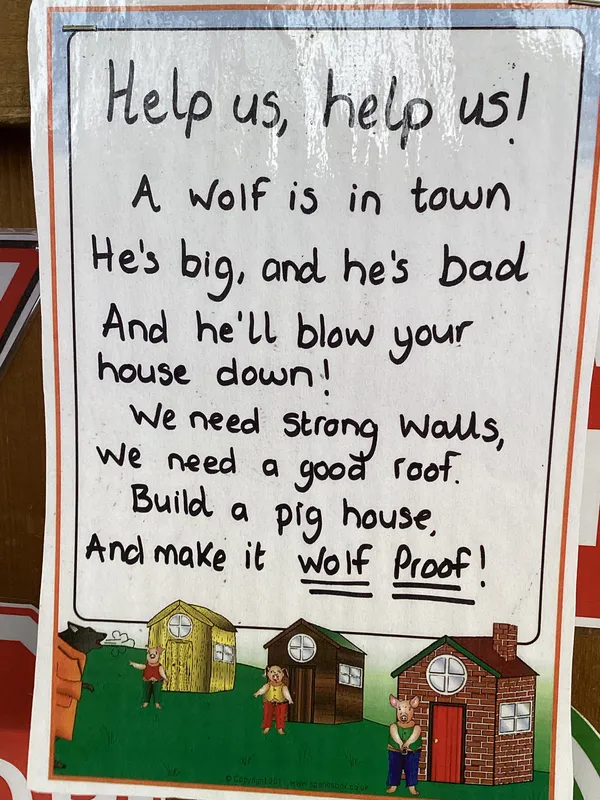 Help us, help us!
A wolf is in town
He's big, and he's bad
And he'll blow your
house down!
We need strong walls,
We need a good roof.
Build a pig house,
And make it Wolf Proof!